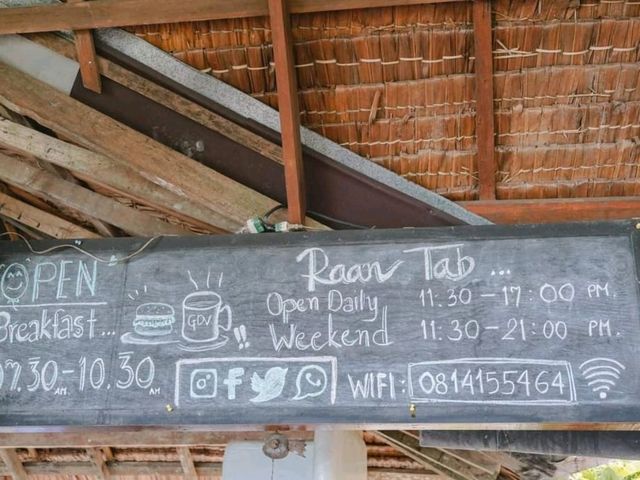 OPEN
Breakfast...
07.30-AM-10.30 AM
GDV !!
Raan Tab...
Open Daily 11.30-17:00 PM.
Weekend 11.30-21:00 PM.
WIFI: 0814155464